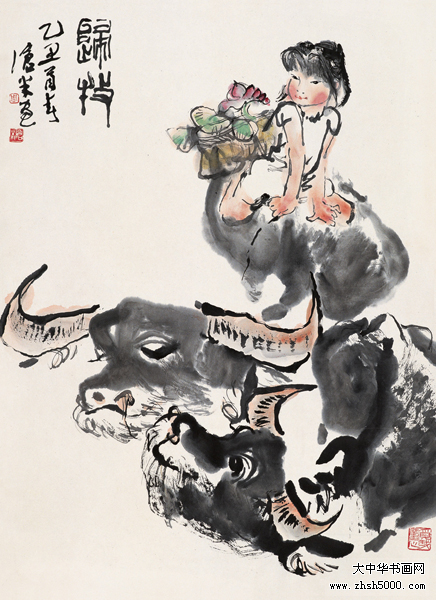 歸牧
乙丑首春
滄米
大中华书画网
www.zhsh5000.com